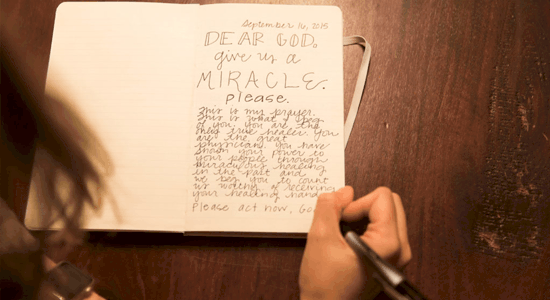 September 16, 2015
DEAR GOD,
give us a
MIRACLE.
please.
This is my prayer.
This is what I beg
of you. You are the
one true healer. You
are the great
physician. You have
shown your power to
your people through
miraculous healing
in the past and
we beg you to count
us worthy of receiving
your healing hand.
Please act now, God